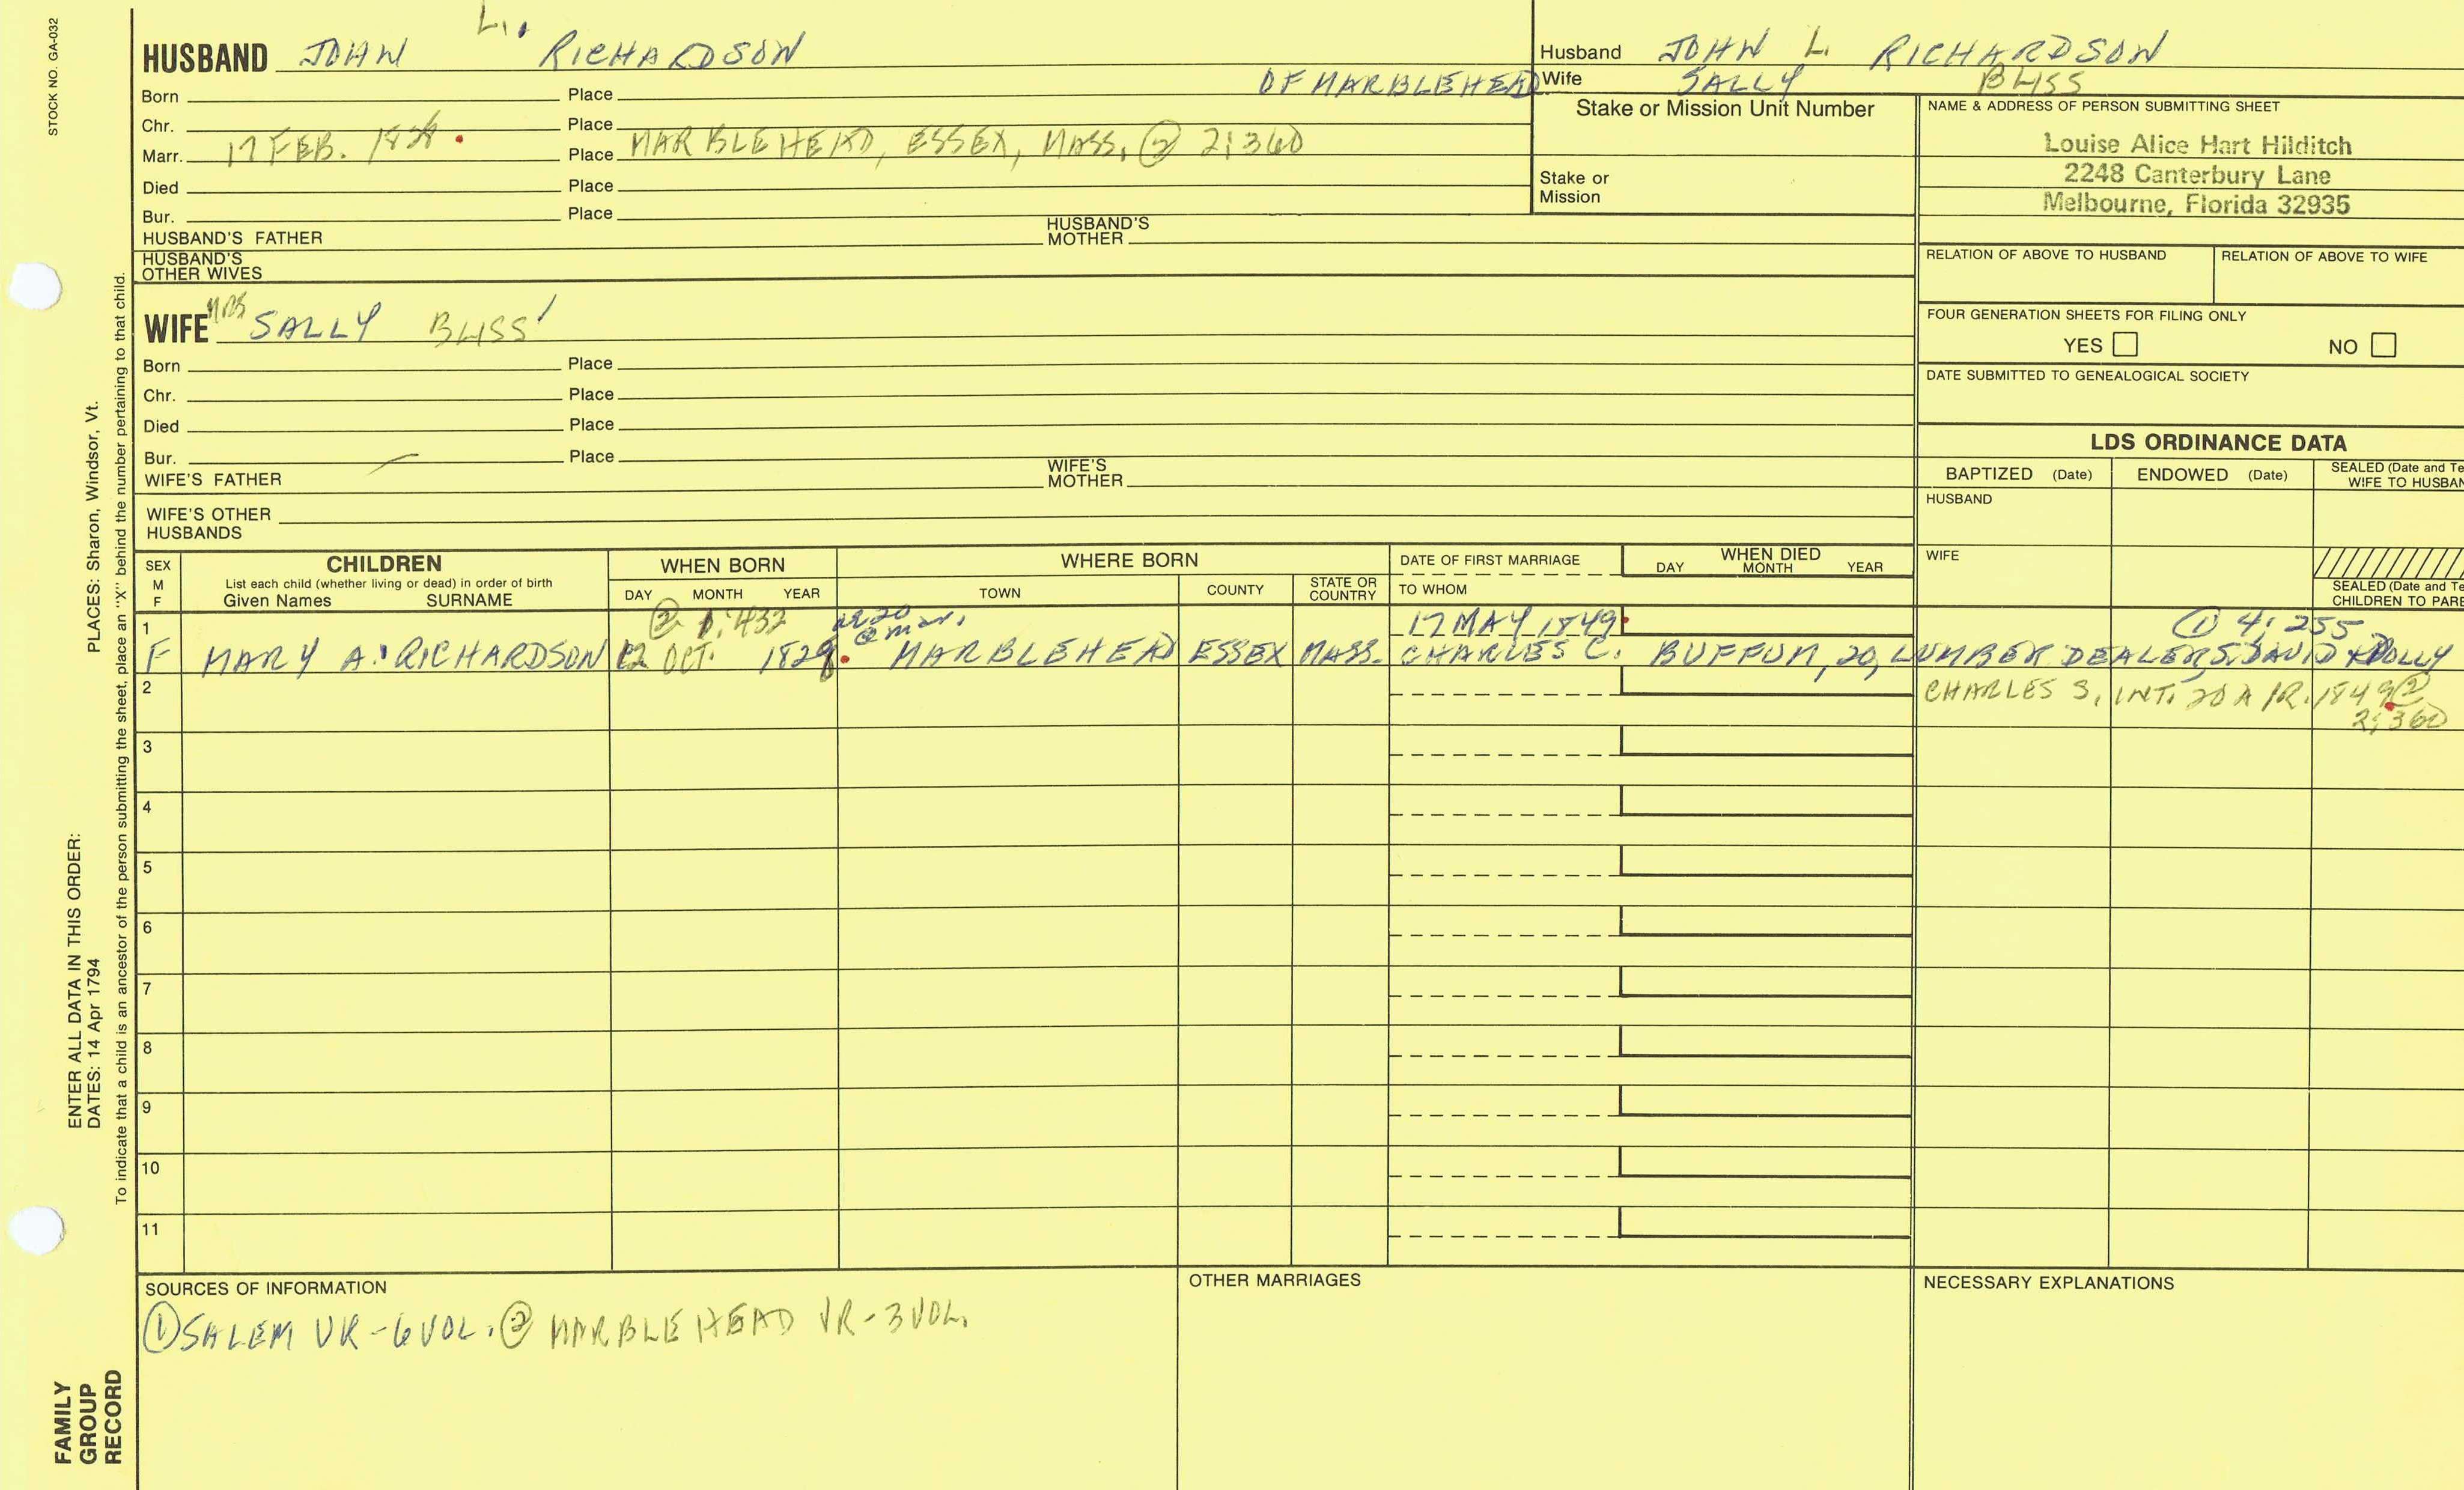 STOCK NO. GA-032
HUSBAND JOHN L. RICHARDSON
OF MARBLEHEAD
Born Place
Chr. Place
Marr. 17 FEB. Place MARBLEHEAD, ESSEX, MASS. ② 2:360
Died Place
Bur. Place
HUSBAND'S FATHER HUSBAND'S MOTHER
HUSBAND'S OTHER WIVES
Husband JOHN L. RICHARDSON
Wife SALLY BLISS
Stake or Mission Unit Number
Stake or Mission
NAME & ADDRESS OF PERSON SUBMITTING SHEET
Louise Alice Hart Hilditch
2248 Canterbury Lane
Melbourne, Florida 32935
RELATION OF ABOVE TO HUSBAND RELATION OF ABOVE TO WIFE
FOUR GENERATION SHEETS FOR FILING ONLY
YES NO
DATE SUBMITTED TO GENEALOGICAL SOCIETY
WIFE MRS SALLY BLISS
Born Place
Chr. Place
Died Place
Bur. Place
WIFE'S FATHER WIFE'S MOTHER
WIFE'S OTHER HUSBANDS
LDS ORDINANCE DATA
BAPTIZED (Date) ENDOWED (Date) SEALED (Date and Te
WIFE TO HUSBAN
HUSBAND
WIFE
SEALED (Date and Te
CHILDREN TO PARE
SEX M F
CHILDREN
List each child (whether living or dead) in order of birth
Given Names SURNAME
WHEN BORN
DAY MONTH YEAR
WHERE BORN
TOWN COUNTY STATE OR COUNTRY
DATE OF FIRST MARRIAGE
TO WHOM
WHEN DIED
DAY MONTH YEAR
1 ② 1:432 ae 20 @ mar. 17 MAY 1849 ① 4:255
F MARY A. RICHARDSON 12 OCT. 1829 MARBLEHEAD ESSEX MASS. CHARLES C. BUFFUM, 20, LUMBER DEALER, S. DAVID & DOLLY
2 CHARLES S. INT. 20 APR. 1849 ②
2:360
3
4
5
6
7
8
9
10
11
SOURCES OF INFORMATION
① SALEM VR-6VOL. ② MARBLEHEAD VR-3VOL.
OTHER MARRIAGES
NECESSARY EXPLANATIONS
ENTER ALL DATA IN THIS ORDER:
DATES: 14 Apr 1794 PLACES: Sharon, Windsor, Vt.
To indicate that a child is an ancestor of the person submitting the sheet, place an "X" behind the number pertaining to that child.
FAMILY
GROUP
RECORD